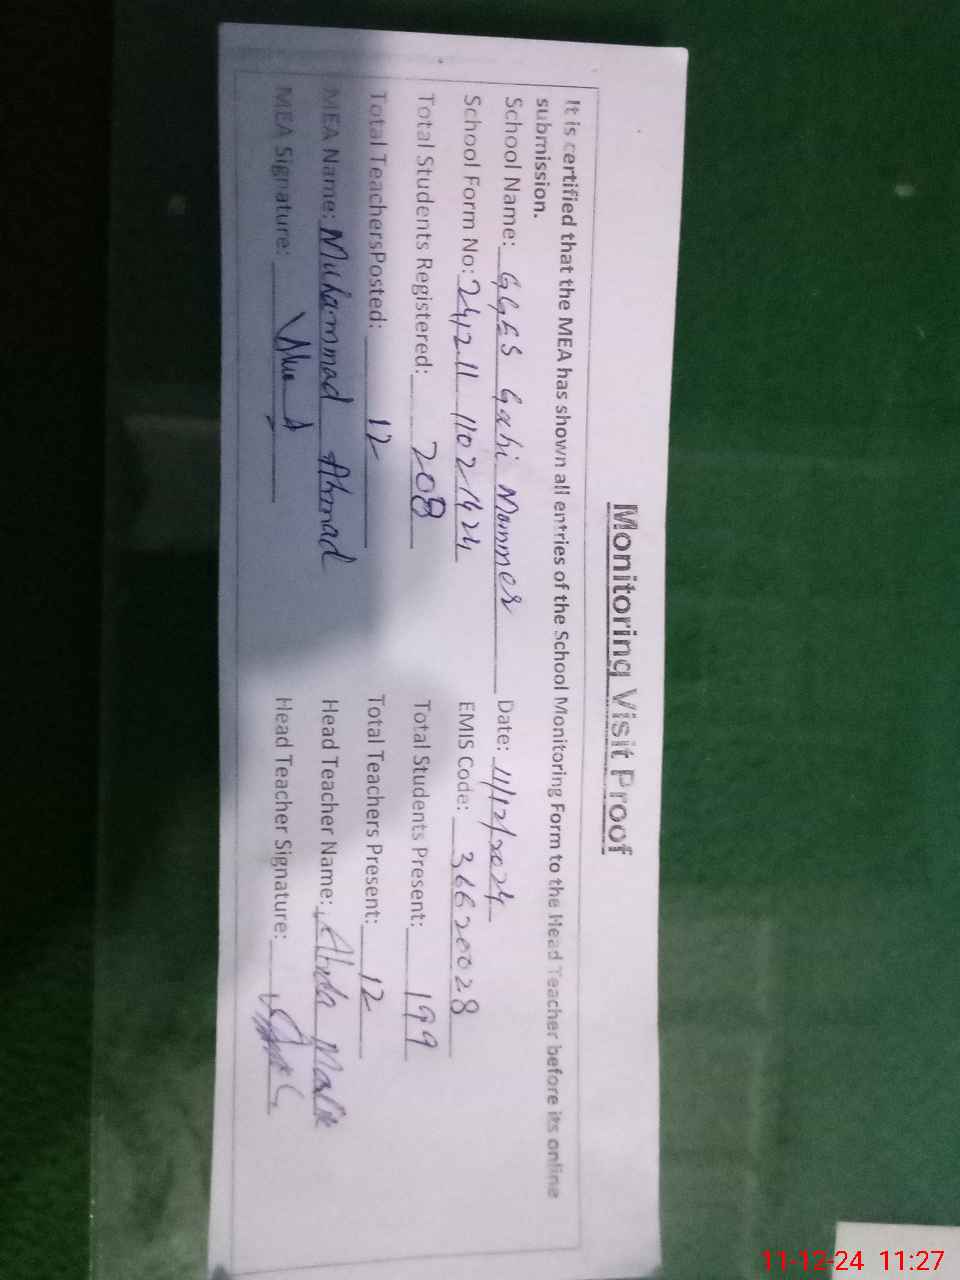 Monitoring Visit Proof
It is certified that the MEA has shown all entries of the School Monitoring Form to the Head Teacher before its online
submission.
School Name: GGES Gahi Mammer Date: 11/12/2024
School Form No: 24211 11021424 EMIS Code: 36620028
Total Students Registered: 208 Total Students Present: 199
Total TeachersPosted: 12 Total Teachers Present: 12
MEA Name: Muhammad Ahmad Head Teacher Name: Malik
MEA Signature: Head Teacher Signature:
11-12-24 11:27